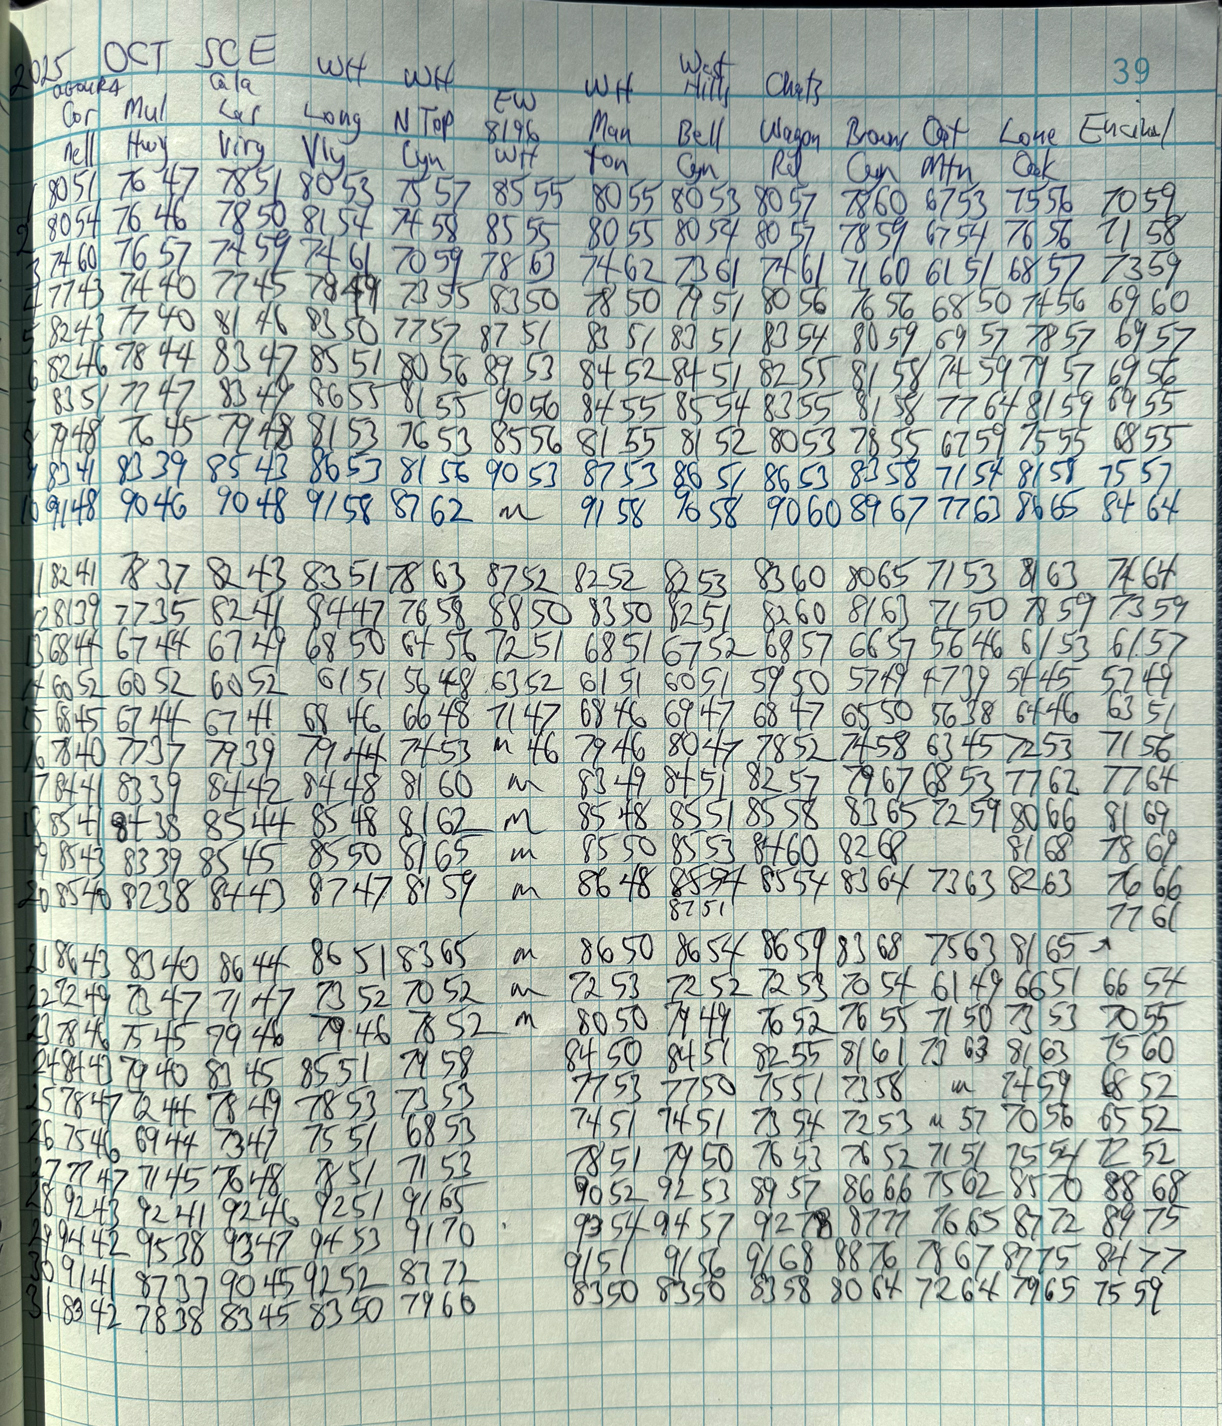 2025 OCT SCE WH WH WH West Hills Chats 39
agoura Cor nell Mul Hwy Cala Lar Virg Long Vly N Top Cyn EW 8196 WH Man ton Bell Cyn Wagon Rd Brown Cyn Oat Mtn Lone Oak Encinal
1 8051 7647 7851 8053 7557 8555 8055 8053 8057 7860 6753 7556 7059
2 8054 7646 7850 8154 7458 8555 8055 8054 8057 7859 6754 7656 7158
3 7460 7657 7459 7461 7059 7863 7462 7361 7461 7160 6151 6857 7359
4 7743 7440 7745 7849 7355 8350 7850 7951 8056 7656 6850 7456 6960
5 8243 7740 8146 8350 7757 8751 8351 8351 8354 8059 6957 7857 6957
6 8246 7844 8347 8551 8056 8953 8452 8451 8255 8158 7459 7957 6956
7 8351 7747 8349 8655 8155 9056 8455 8554 8355 8158 7764 8159 6955
8 7948 7645 7948 8153 7653 8556 8155 8152 8053 7855 6759 7555 6855
9 8341 8339 8543 8653 8156 9053 8753 8651 8653 8358 7154 8158 7557
10 9148 9046 9048 9158 8762 m 9158 9658 9060 8967 7763 8665 8464
11 8241 7837 8243 8351 7863 8752 8252 8253 8360 8065 7153 8163 7464
12 8139 7735 8241 8447 7658 8850 8350 8251 8260 8163 7150 7859 7359
13 6844 6744 6749 6850 6456 7251 6851 6752 6857 6657 5646 6153 6157
14 6052 6052 6052 6151 5648 6352 6151 6051 5950 5749 4739 5445 5749
15 6845 6744 6741 6846 6648 7147 6846 6947 6847 6550 5638 6446 6351
16 7840 7737 7939 7944 7453 m 46 7946 8047 7852 7458 6345 7253 7156
17 8441 8339 8442 8448 8160 m 8349 8451 8257 7967 6853 7762 7764
18 8541 8438 8544 8548 8162 m 8548 8551 8558 8365 7259 8066 8169
19 8543 8339 8545 8550 8165 m 8550 8553 8460 8268 8168 7869
20 8540 8238 8443 8747 8159 m 8648 8554 8554 8364 7363 8263 7666
8751 7761
21 8643 8340 8644 8651 8365 m 8650 8654 8659 8368 7563 8165
22 7249 7347 7147 7352 7052 m 7253 7252 7253 7054 6149 6651 6654
23 7846 7545 7946 7946 7852 m 8050 7949 7652 7655 7150 7353 7055
24 8443 7940 8345 8551 7958 8450 8451 8255 8161 7363 8163 7560
25 7847 7244 7849 7853 7353 7753 7750 7551 7358 m 7459 6852
26 7546 6944 7347 7551 6853 7451 7451 7354 7253 m 57 7056 6552
27 7747 7145 7648 7851 7153 7851 7950 7653 7652 7151 7554 7252
28 9243 9241 9246 9251 9165 9052 9253 8957 8666 7562 8570 8868
29 9442 9538 9347 9453 9170 9354 9457 9278 8777 7665 8772 8975
30 9141 8737 9045 9252 8772 9151 9156 9168 8876 7867 8775 8477
31 8342 7838 8345 8350 7960 8350 8350 8358 8064 7264 7965 7559